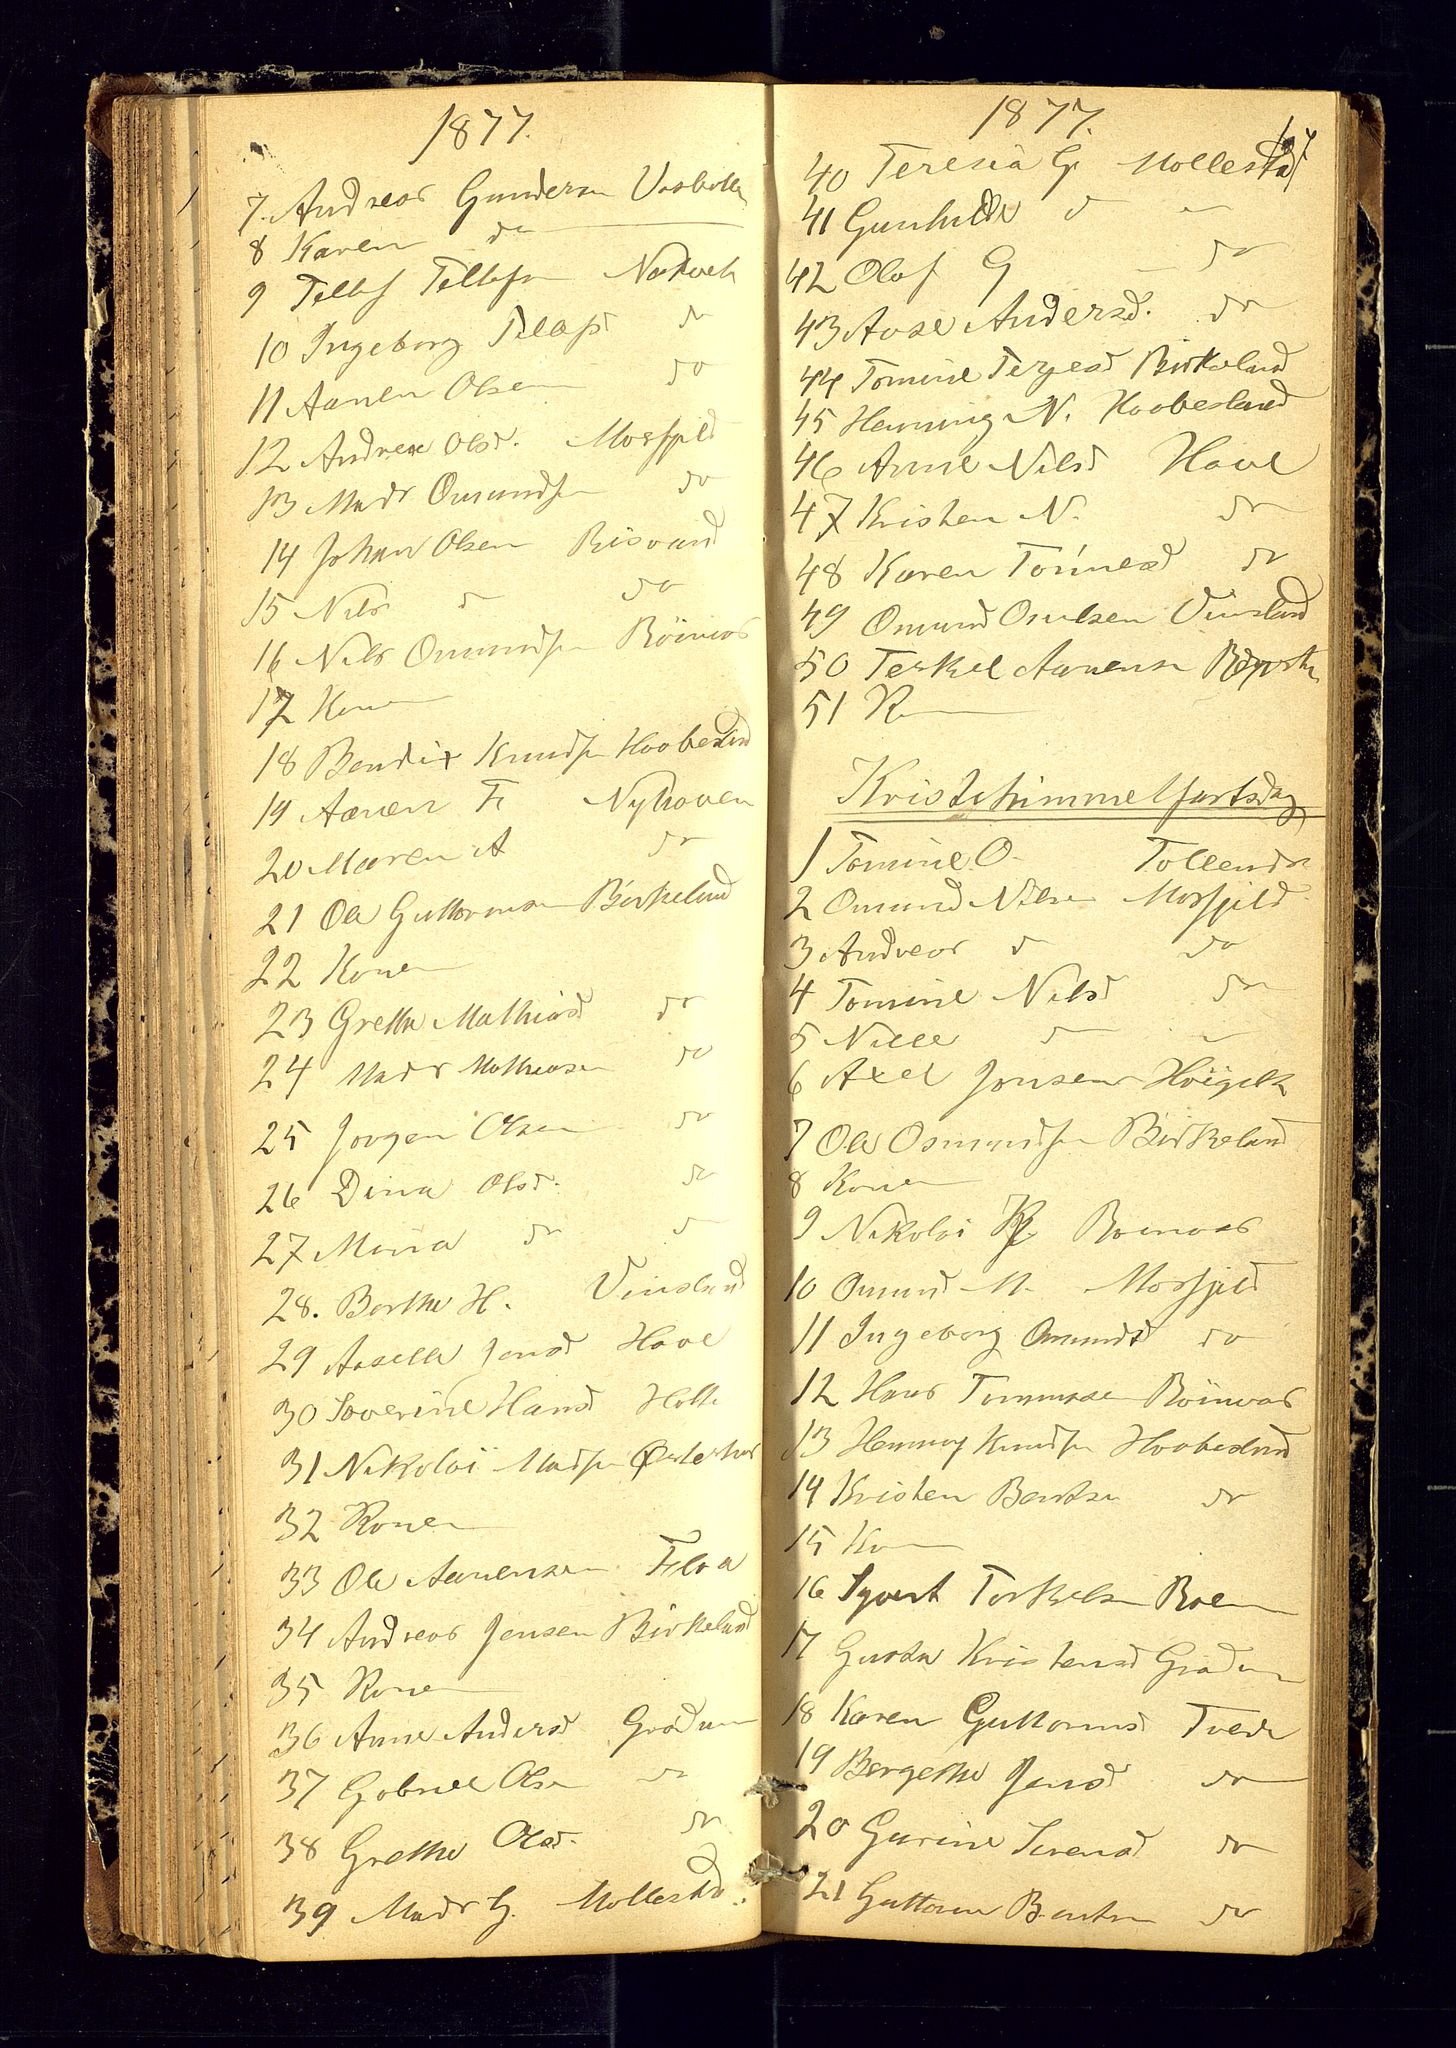 1877.
7. Andreas Gundersen
8 Karen do
9 Tellef Tellefsen
10 Ingeborg do
11 Aanen Olsen do
12 Andrea Olsd. Mosfjeld
13 Mads Omundsen do
14 Johan Olsen Risvand
15 Nils d do
16 Nils Omundsen Röinaas
17 Konen
18 Bendix Knudsen Haabesland
19 Aanen F Nyhaven
20 Maren A do
21 Ole Guttormsen Birkeland
22 Konen
23 Grethe Mathiasd do
24 Mads Mathiasen do
25 Jørgen Olsen do
26 Dina Olsd. do
27 Mina do d
28. Berthe H. Vinsland
29 Aaselle Jensd Have
30 Severine Hansd Holte
31 Nikolai Madsen Østerhus
32 Konen
33 Ole Aanensen Flaa
34 Andreas Jensen Birkeland
35 Konen
36 Anne Andersd Gradum
37 Gabriel Olsen do
38 Grethe Olsd. do
39 Mads G. Mollestad.
1877.
40 Teresia G Mollestad
41 Gunhilde d "
42 Olaf G do
43 Aase Andersd. do
44 Tomine Terjesd Birkeland
45 Henning N. Haabesland
46 Anne Nilsd Have
47 Kristen N. do
48 Karen Tönnesd do
49 Omund Osulsen Vinsland
50 Terkel Aanensen
51 K
Kristihimmelfartsdag
1 Tomine O. Tollend
2 Omund Nilsen Mosfjeld
3 Andreas d do
4 Tomine Nilsd do
5 Nille d "
6 Axel Jensen
7 Ole Osmundsen Birkeland
8 Konen
9 Nikolai K. Roinaas
10 Omund M. Mosfjeld
11 Ingeborg Omundsd do
12 Hans Tommesen Röinaas
13 Henning Knudsen Haabesland
14 Kristen Bentsen do
15 Kon
16 Syvert Torkelsen Roen
17 Gusta Kristensd Gradum
18 Karen Guttormsd Tvede
19 Bergethe Jensd do
20 Gurine Sivensd do
21 Guttorm Bentsen do